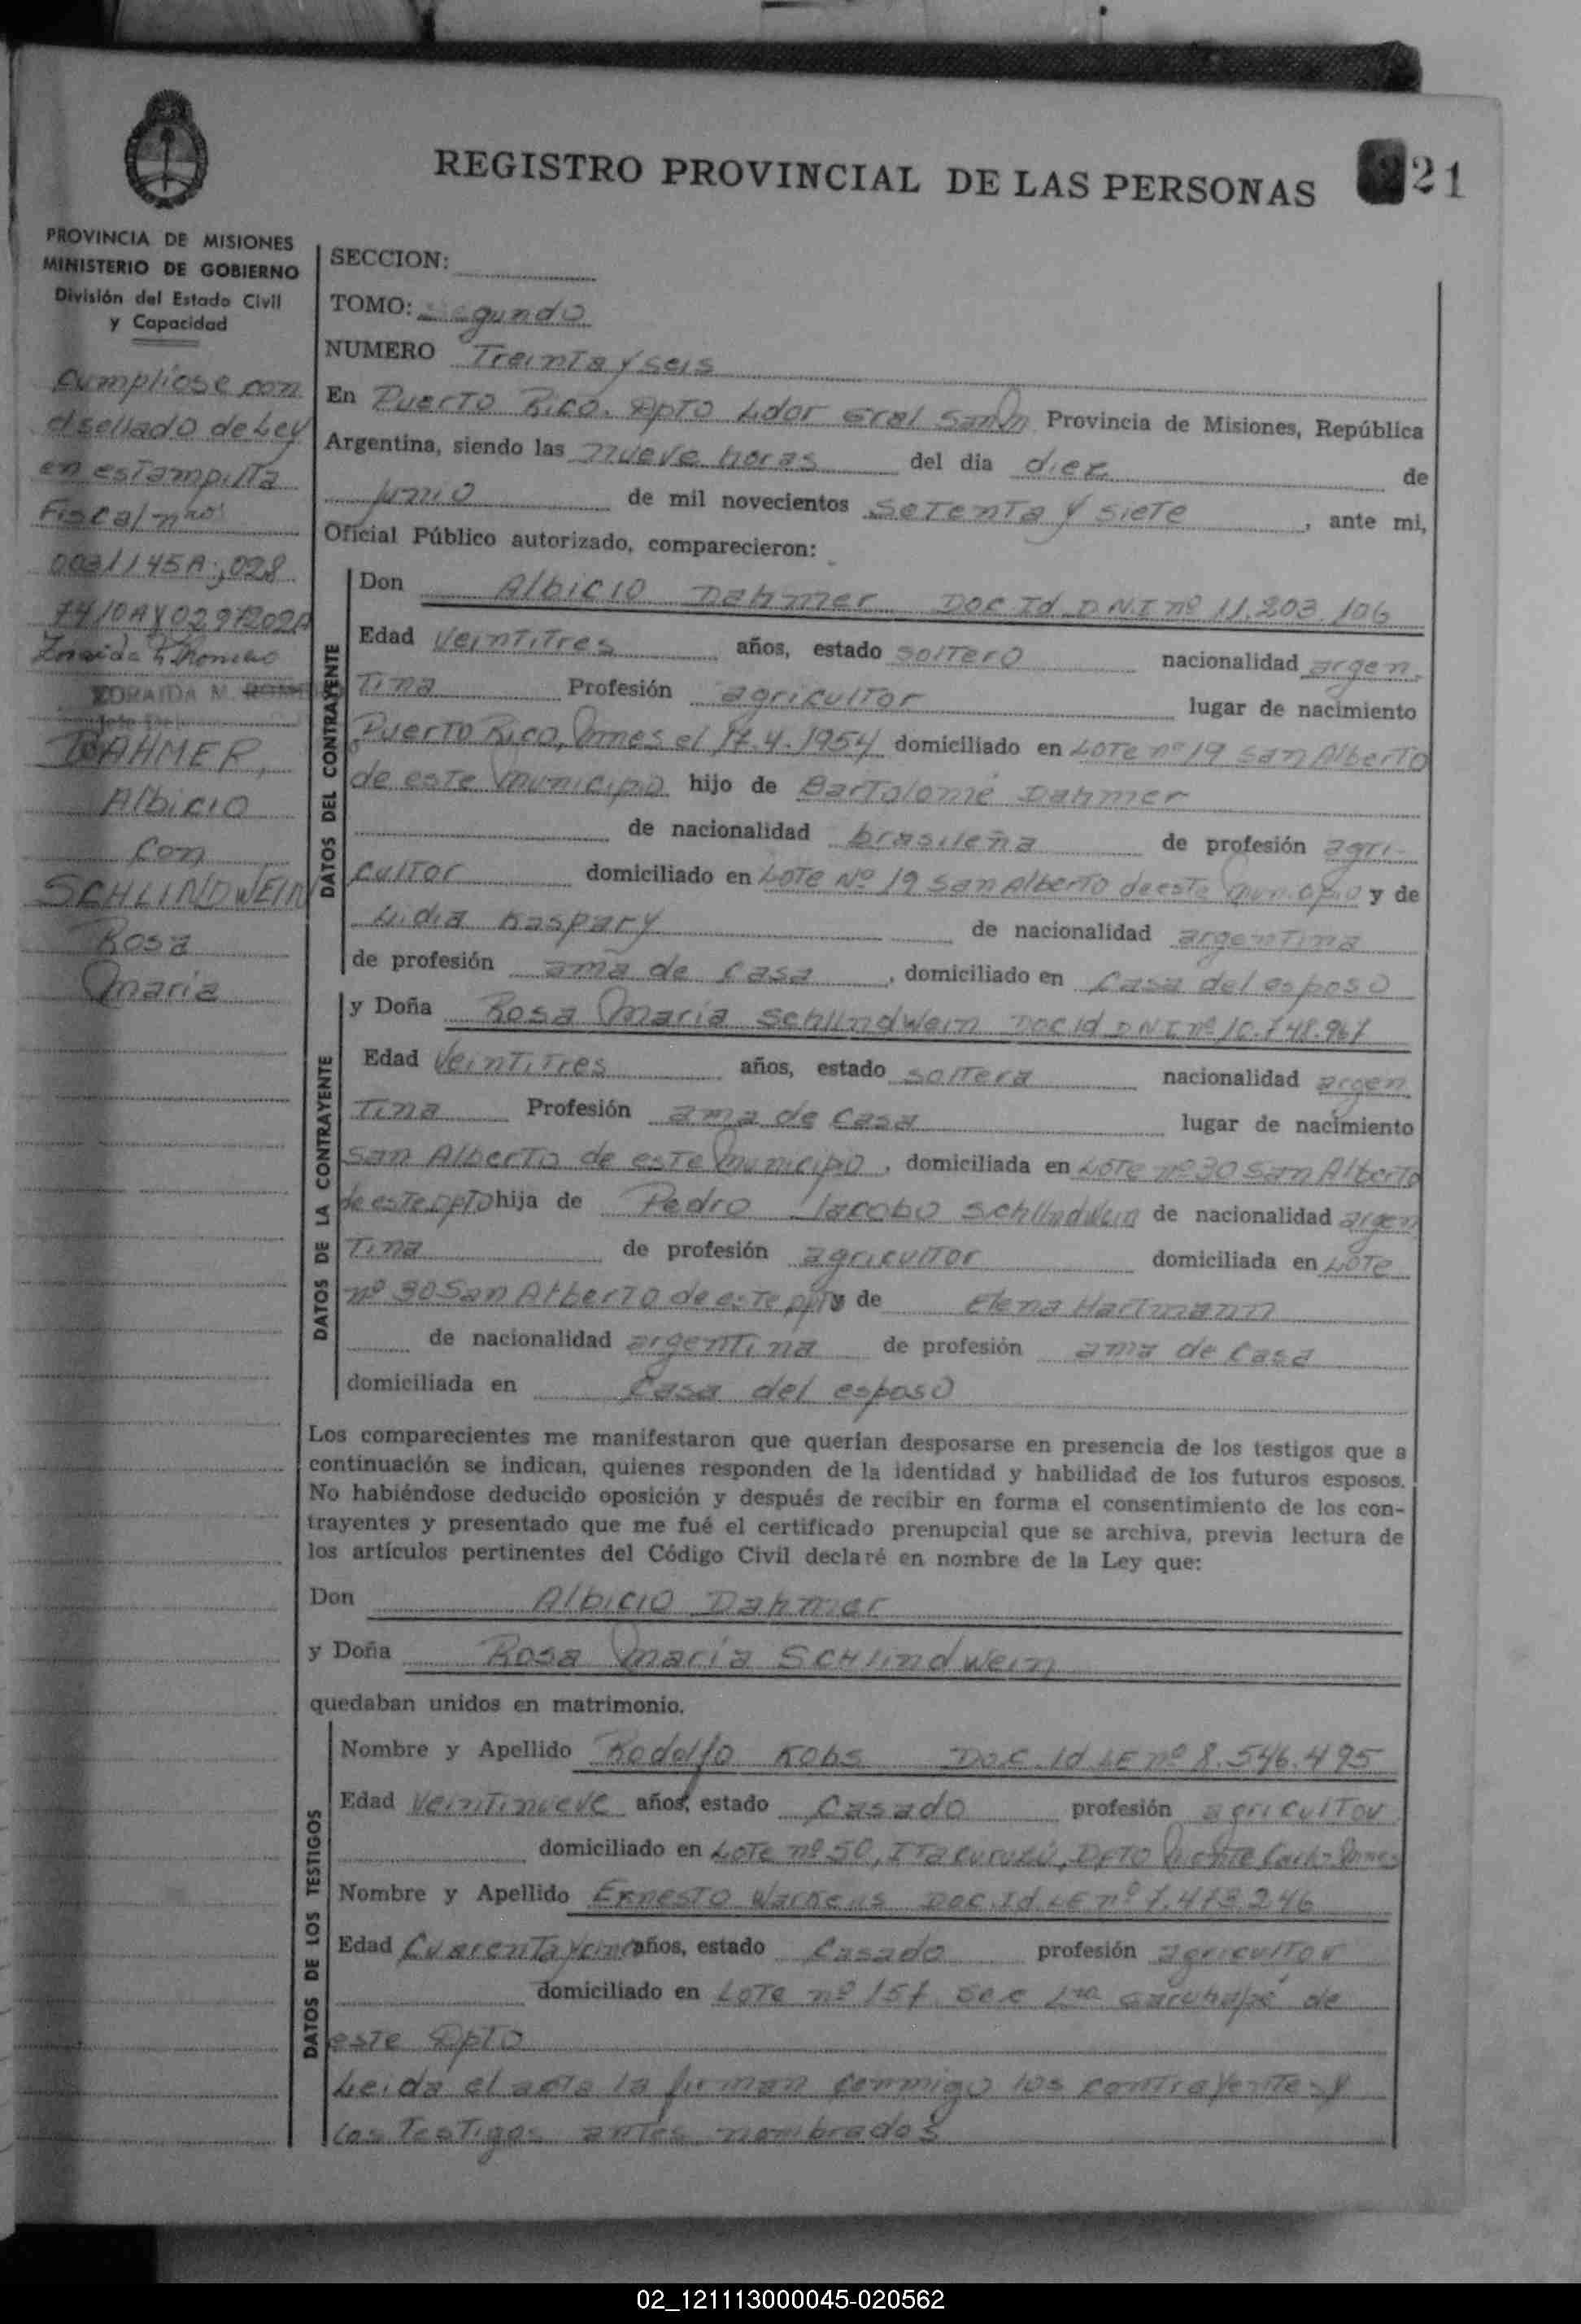 REGISTRO PROVINCIAL DE LAS PERSONAS
21
PROVINCIA DE MISIONES
MINISTERIO DE GOBIERNO
División del Estado Civil
y Capacidad
Cumpliose con
el sellado de Ley
en estampilla
Fiscal nros
ZORAIDA M.
DAHMER,
Albicio
con
SCHLINDWEIN
Rosa
Maria
SECCION:
TOMO: Segundo
NUMERO Treinta y seis
En Puerto Rico. Dpto Ldor Gral San M Provincia de Misiones, República
Argentina, siendo las nueve horas del dia diez de
junio de mil novecientos setenta y siete, ante mi,
Oficial Público autorizado, comparecieron:
DATOS DEL CONTRAYENTE
Don Albicio Dahmer Doc Id D.N.I nº 11.203.106
Edad Veintitres años, estado soltero nacionalidad argen
tina Profesión agricultor lugar de nacimiento
Puerto Rico, Mnes el 17.4.1954 domiciliado en Lote nº 19 San Alberto
de este Municipio hijo de Bartolomé Dahmer
de nacionalidad brasileña de profesión agri-
cultor domiciliado en Lote Nº 19 San Alberto de este Municipio y de
Lidia Kaspary de nacionalidad argentina
de profesión ama de casa, domiciliado en Casa del esposo
DATOS DE LA CONTRAYENTE
y Doña Rosa Maria Schlindwein Doc Id D.N.I nº 10.748.967
Edad Veintitres años, estado soltera nacionalidad argen
tina Profesión ama de casa lugar de nacimiento
San Alberto de este Municipio, domiciliada en Lote nº 30 San Alberto
de este Dpto hija de Pedro Jacobo Schlindwein de nacionalidad argen
tina de profesión agricultor domiciliada en Lote
nº 30 San Alberto de este Dpto y de Elena Hartmann
de nacionalidad argentina de profesión ama de casa
domiciliada en Casa del esposo
Los comparecientes me manifestaron que querían desposarse en presencia de los testigos que a
continuación se indican, quienes responden de la identidad y habilidad de los futuros esposos.
No habiéndose deducido oposición y después de recibir en forma el consentimiento de los con-
trayentes y presentado que me fué el certificado prenupcial que se archiva, previa lectura de
los artículos pertinentes del Código Civil declaré en nombre de la Ley que:
Don Albicio Dahmer
y Doña Rosa Maria Schlindwein
quedaban unidos en matrimonio.
DATOS DE LOS TESTIGOS
Nombre y Apellido Rodolfo Kobs Doc Id LE nº 8.546.495
Edad Veintinueve años, estado Casado profesión agricultor
domiciliado en Lote nº 50, Itacuruzú, Dpto
Nombre y Apellido Ernesto Warkens Doc. Id LE nº 7.473.246
Edad Cuarenta y cinco años, estado Casado profesión agricultor
domiciliado en Lote nº 157 Sec 1ra Garuhapé de
este Dpto
Leida el acta la firman conmigo los contrayentes y
los Testigos antes nombrados
02_121113000045-020562